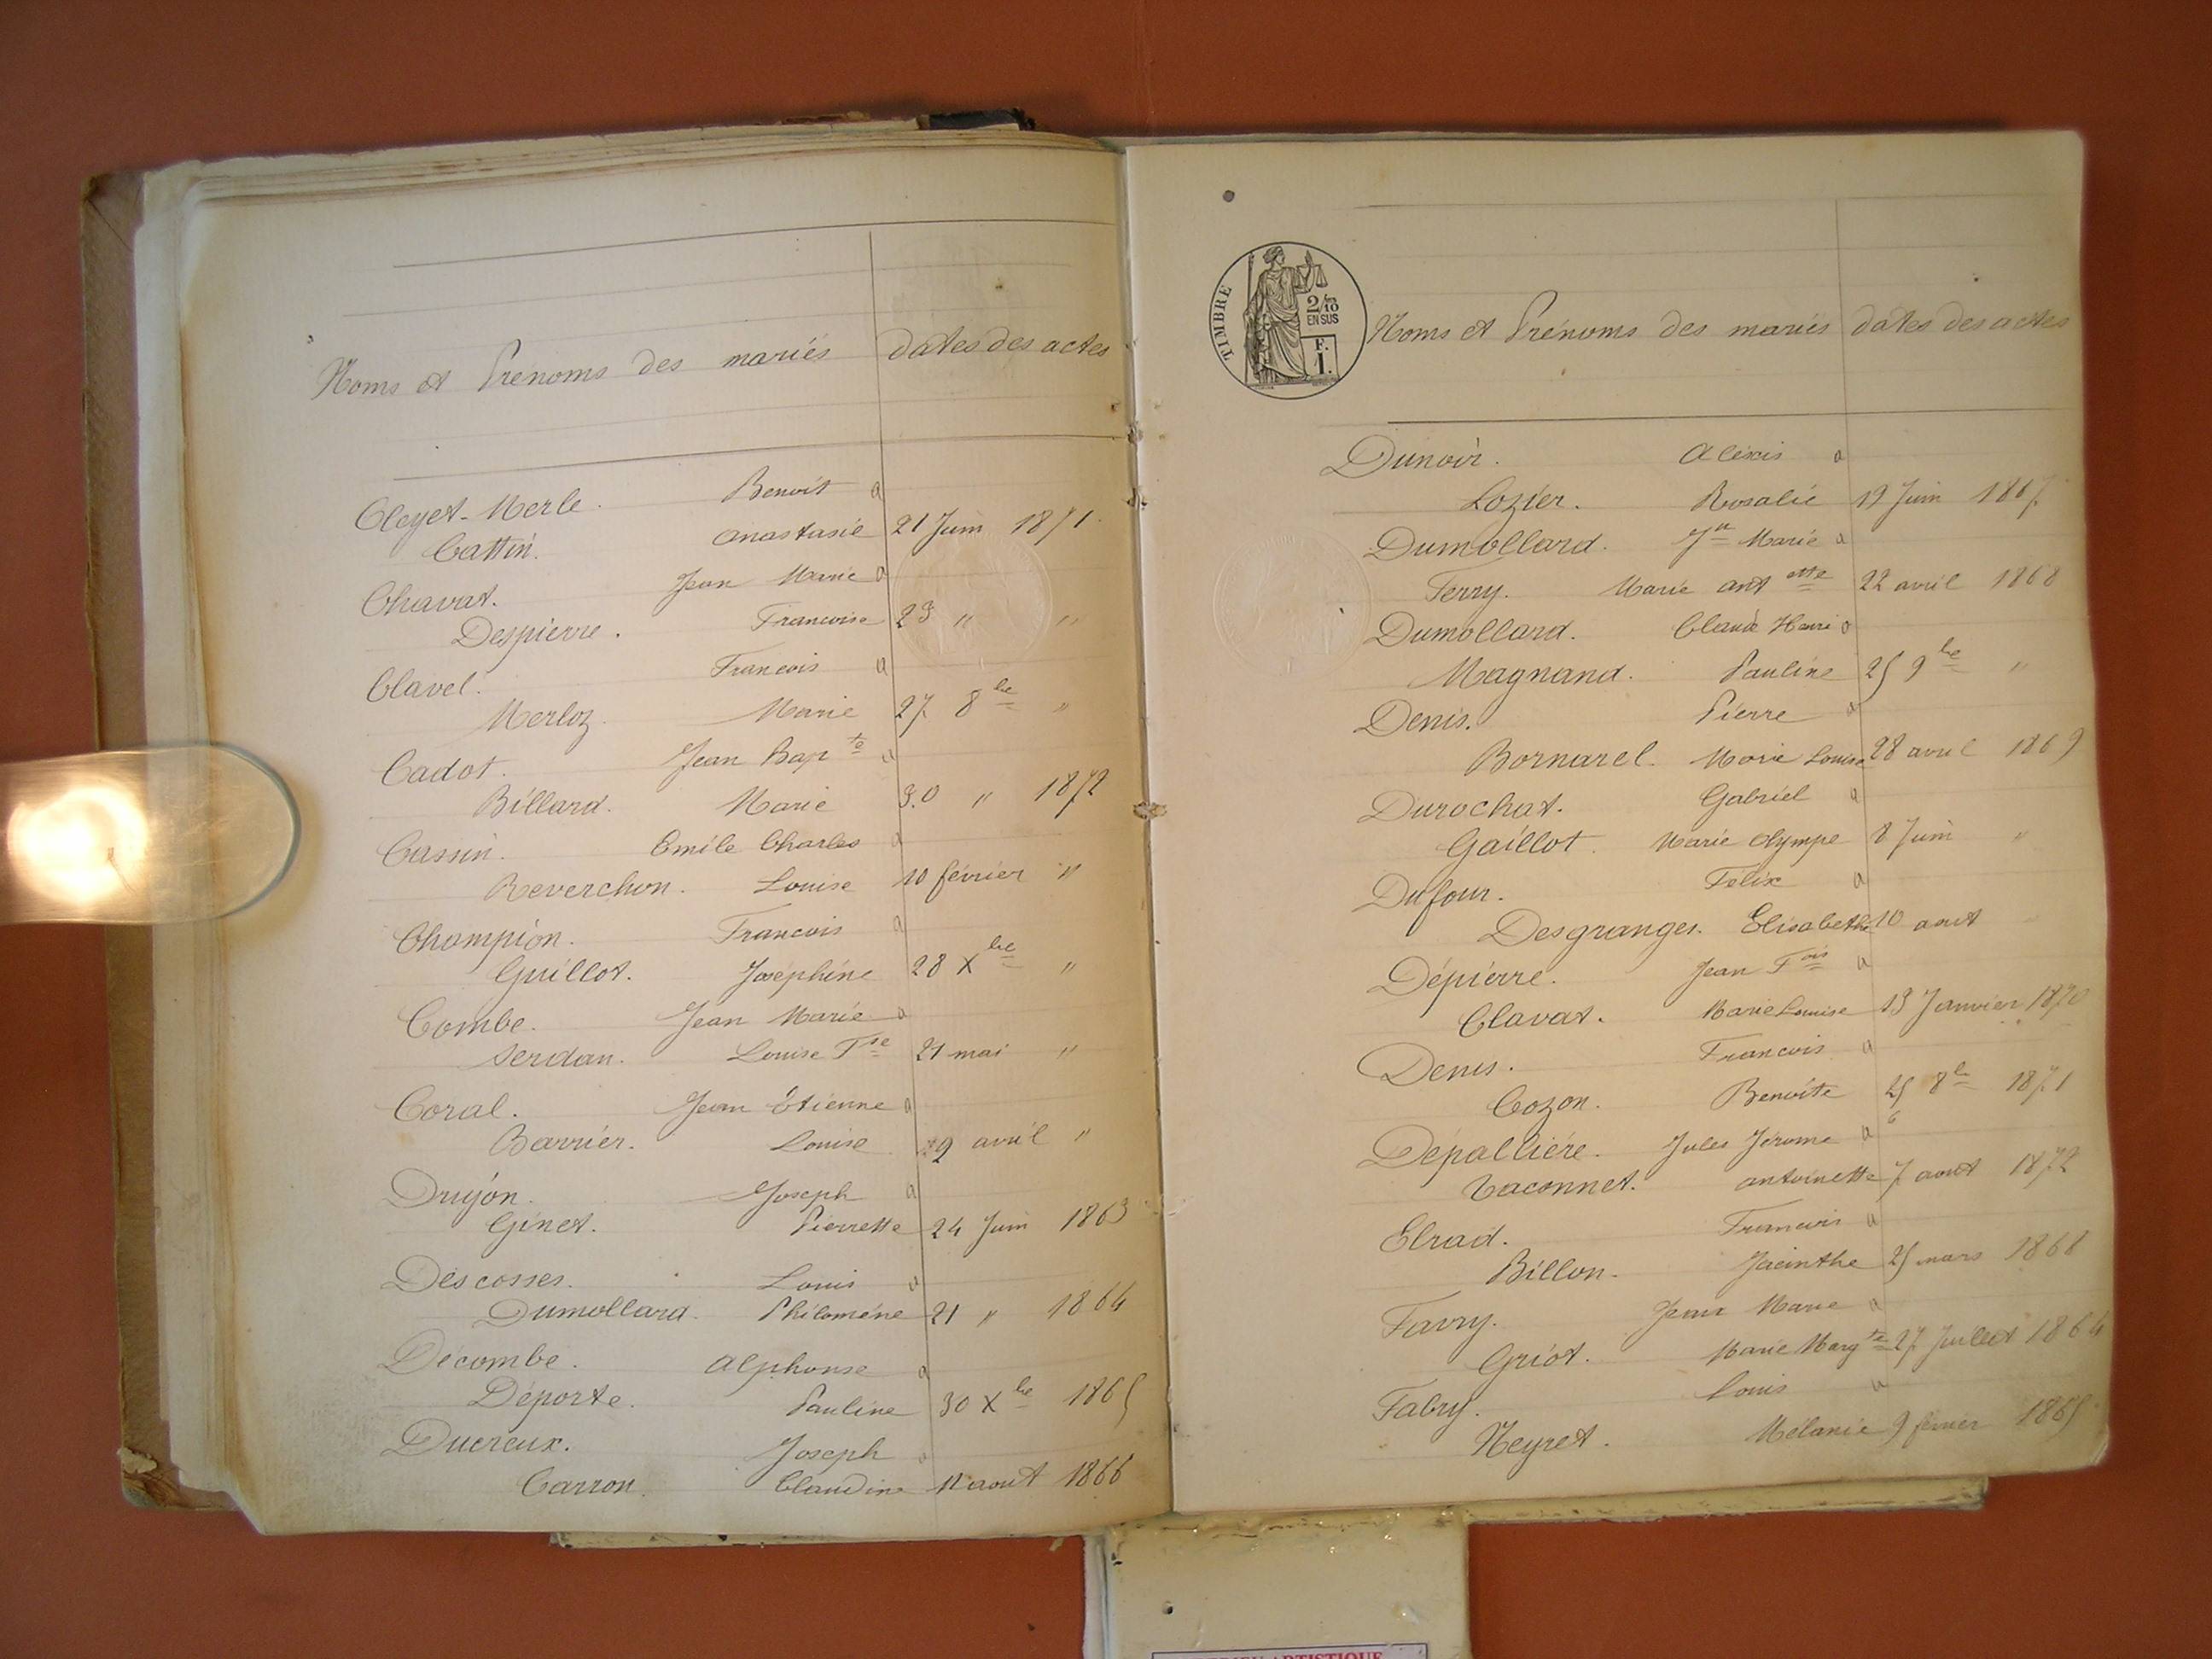 Noms et Prénoms des mariés dates des actes
Cleyet-Merle. Benoit a
Cattin. Anastasie 21 Juin 1871.
Chavat. Jean Marie a
Despierre. Francoise 23 " "
Clavel. Francois a
Merloz. Marie 27 8bre "
Cadot. Jean Bapte a
Billard. Marie 30 " 1872
Cassin. Emile Charles a
Reverchon. Louise 10 février "
Champion. Francois a
Guillot. Joséphine 28 Xbre "
Combe. Jean Marie a
Serdan. Louise Fse 21 mai "
Coral. Jean Étienne a
Barrier. Louise 9 avril "
Dujon. Joseph a
Ginet. Pierrette 24 Juin 1863
Descosses. Louis a
Dumollard. Philomène 21 " 1864
Décombe. Alphonse a
Déporte. Pauline 30 Xbre 1865
Ducreux. Joseph a
Carron. Claudine 11 aout 1866
TIMBRE
2/10
EN SUS
F.
1.
Noms et Prénoms des mariés dates des actes
Dunoir. Alexis a
Lozier. Rosalie 19 Juin 1867.
Dumollard. Jn Marie a
Ferry. Marie antette 22 avril 1868
Dumollard. Claude Henri a
Magnand. Pauline 25 9bre "
Denis. Pierre a
Bornarel. Marie Louise 28 avril 1869
Durochat. Gabriel a
Gaillot. Marie Olympe 8 Juin "
Dufour. Felix a
Desgranges. Elisabeth 10 aout
Dépierre. Jean Fois a
Clavat. Marie Louise 13 Janvier 1870
Denis. Francois a
Cozon. Benoite 25 8b 1871
Dépallière. Jules Jérome a 6
Taconnet. antoinette 7 aout 1872
Elrad. Francois a
Billon. Jacinthe 25 mars 1868
Favry. Jean Marie a
Griot. Marie Margte 27 Juillet 1864
Fabry. Louis a
Neyret. Mélanie 9 février 1865
ARTISTIQUE